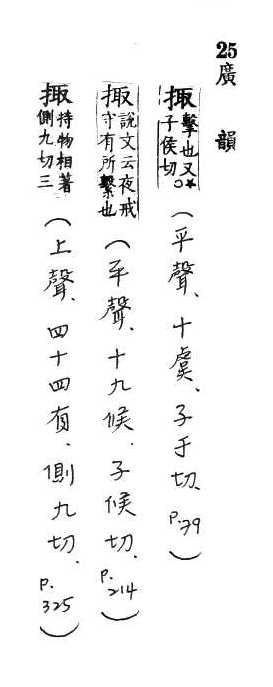 25 廣韻
掫 擊也又
子侯切○*
(平聲、十虞、子于切、P.79)
掫 說文云夜戒
守有所繫也
(平聲、十九候、子候切、P.214)
掫 持物相著
側九切三
(上聲、四十四有、側九切、P.325)